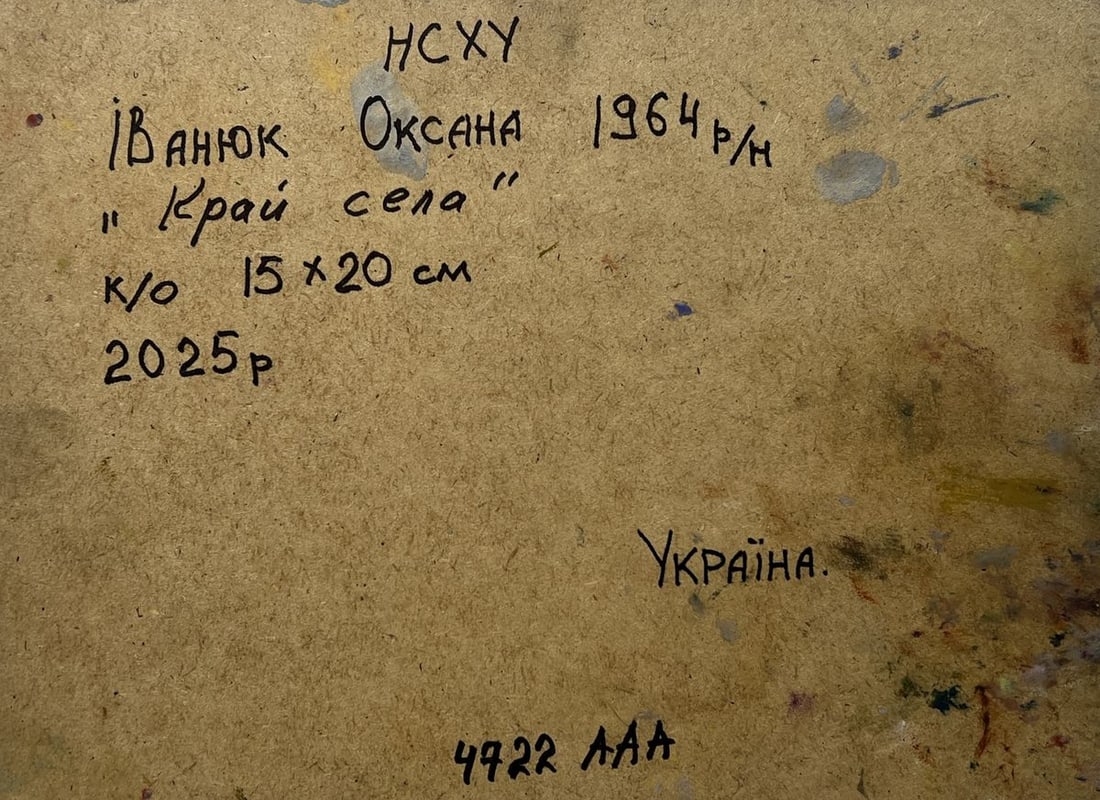 НСХУ
Іванюк Оксана 1964 р/н
„ Край села "
к/о 15 х 20 см
2025 р
Україна.
4722 ААА